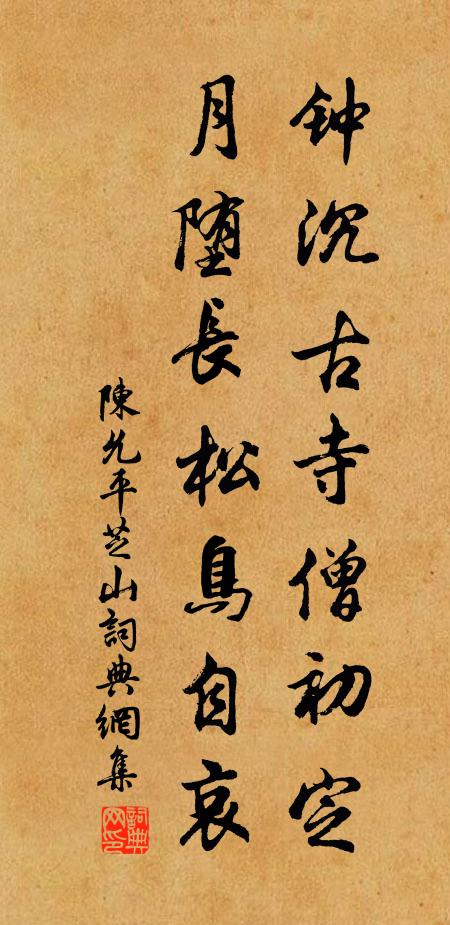 钟沉古寺僧初定
月堕長松鳥自哀
陳允平芝山詞典網集
詞典网印